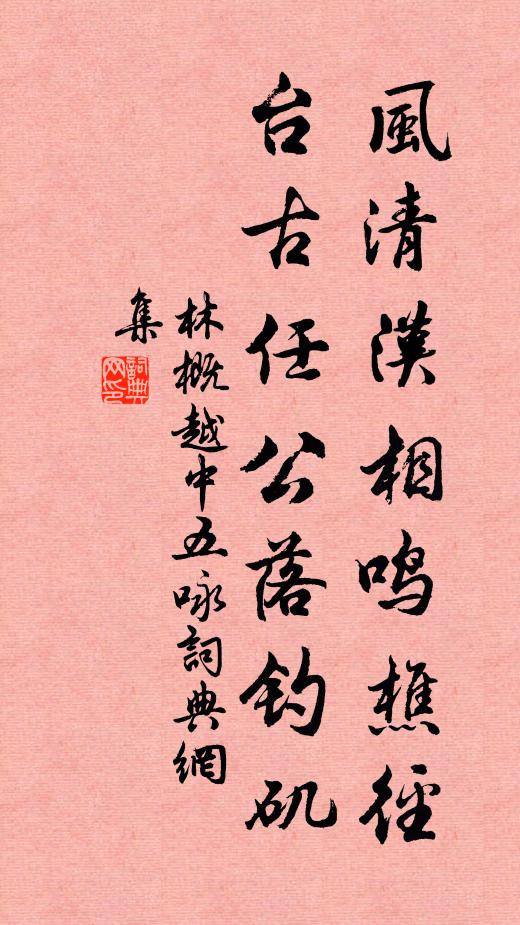 風清漢相鳴樵徑
台古任公落钓矶
林概越中五咏詞典網
集
詞典
网印